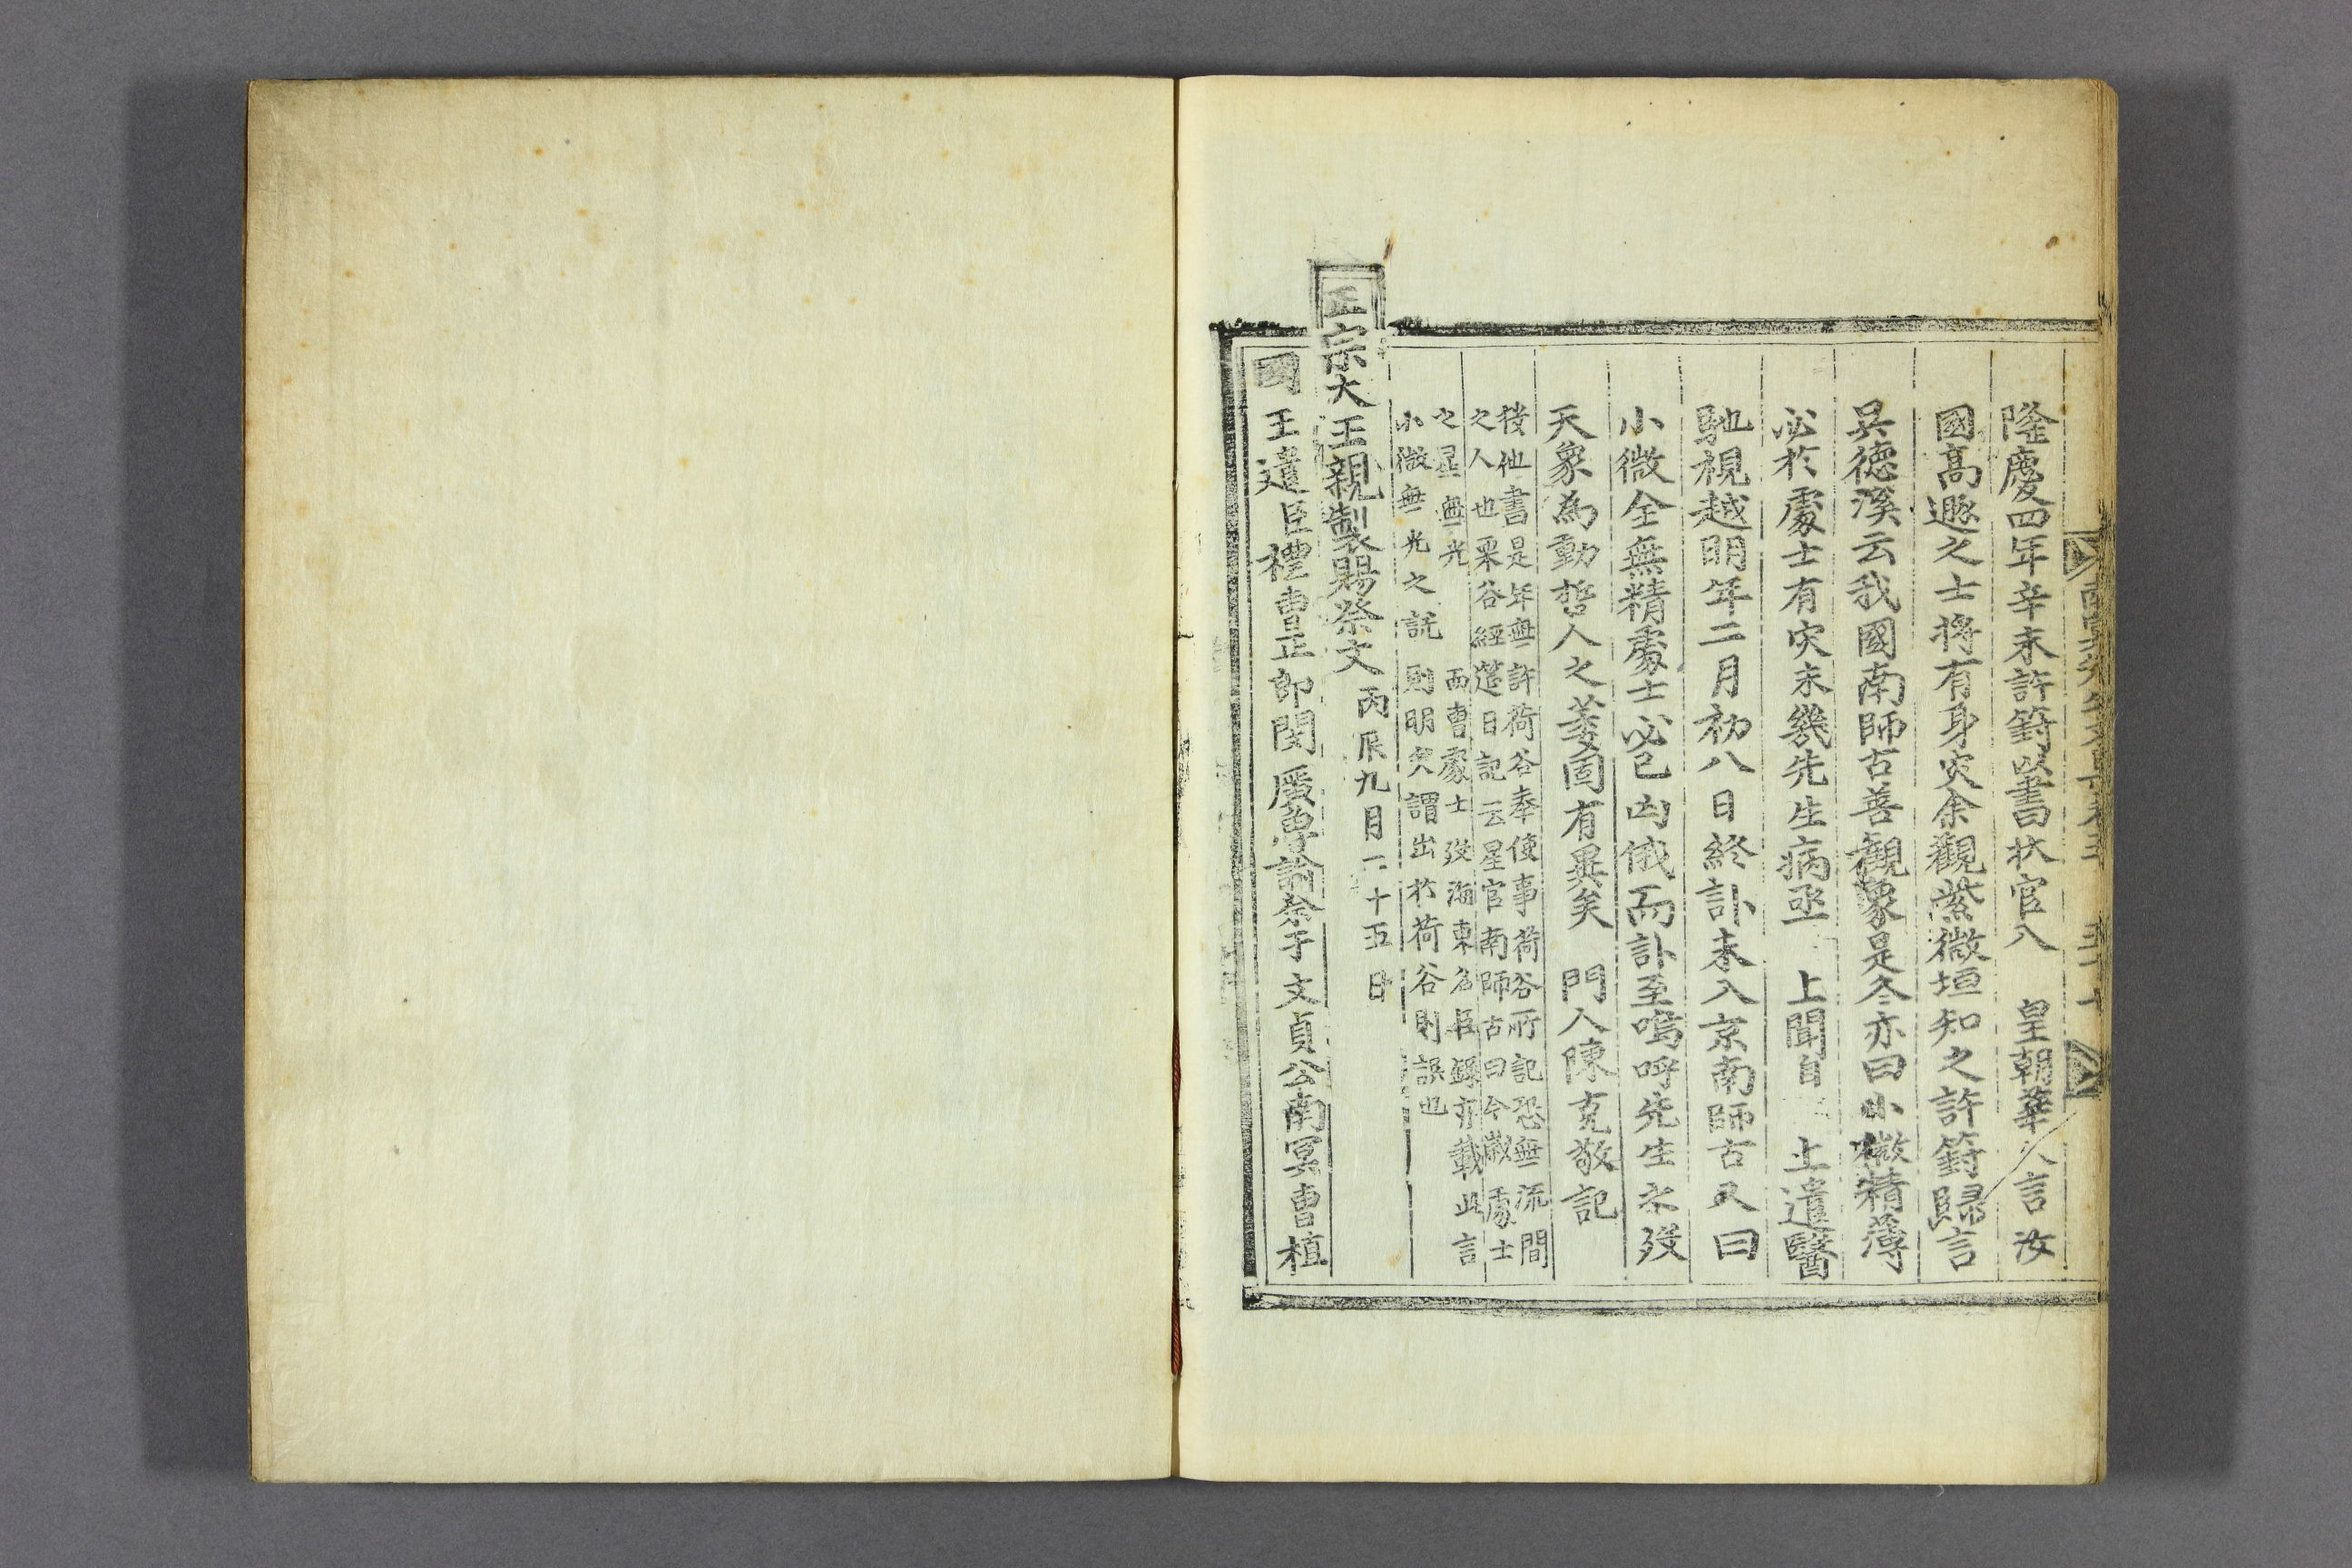 隆慶四年辛未許篈以書狀官入 皇朝華人言汝
國高遯之士將有身灾余觀紫微垣知之許篈歸言
吳德溪云我國南師古善觀象是冬亦曰小微精薄
必於處士有灾未幾先生病亟 上聞自 上遣醫
馳視越明年二月初八日終訃未入京南師古又曰
小微全無精處士必已凶俄而訃至嗚呼先生之歿
天象為動哲人之萎固有異矣 門人陳克敬記
按他書是年無許荷谷奉使事荷谷所記恐無流間
之人也栗谷經筵日記云星官南師古曰今歲處士
之星無光 而曹處士歿海東名臣錄亦載此言
小微無光之說 則明矣謂出於荷谷則誤也
正宗大王親製賜祭文 丙辰九月二十五日
國王遣臣禮曹正郎閔 致祭于文貞公南冥曹植